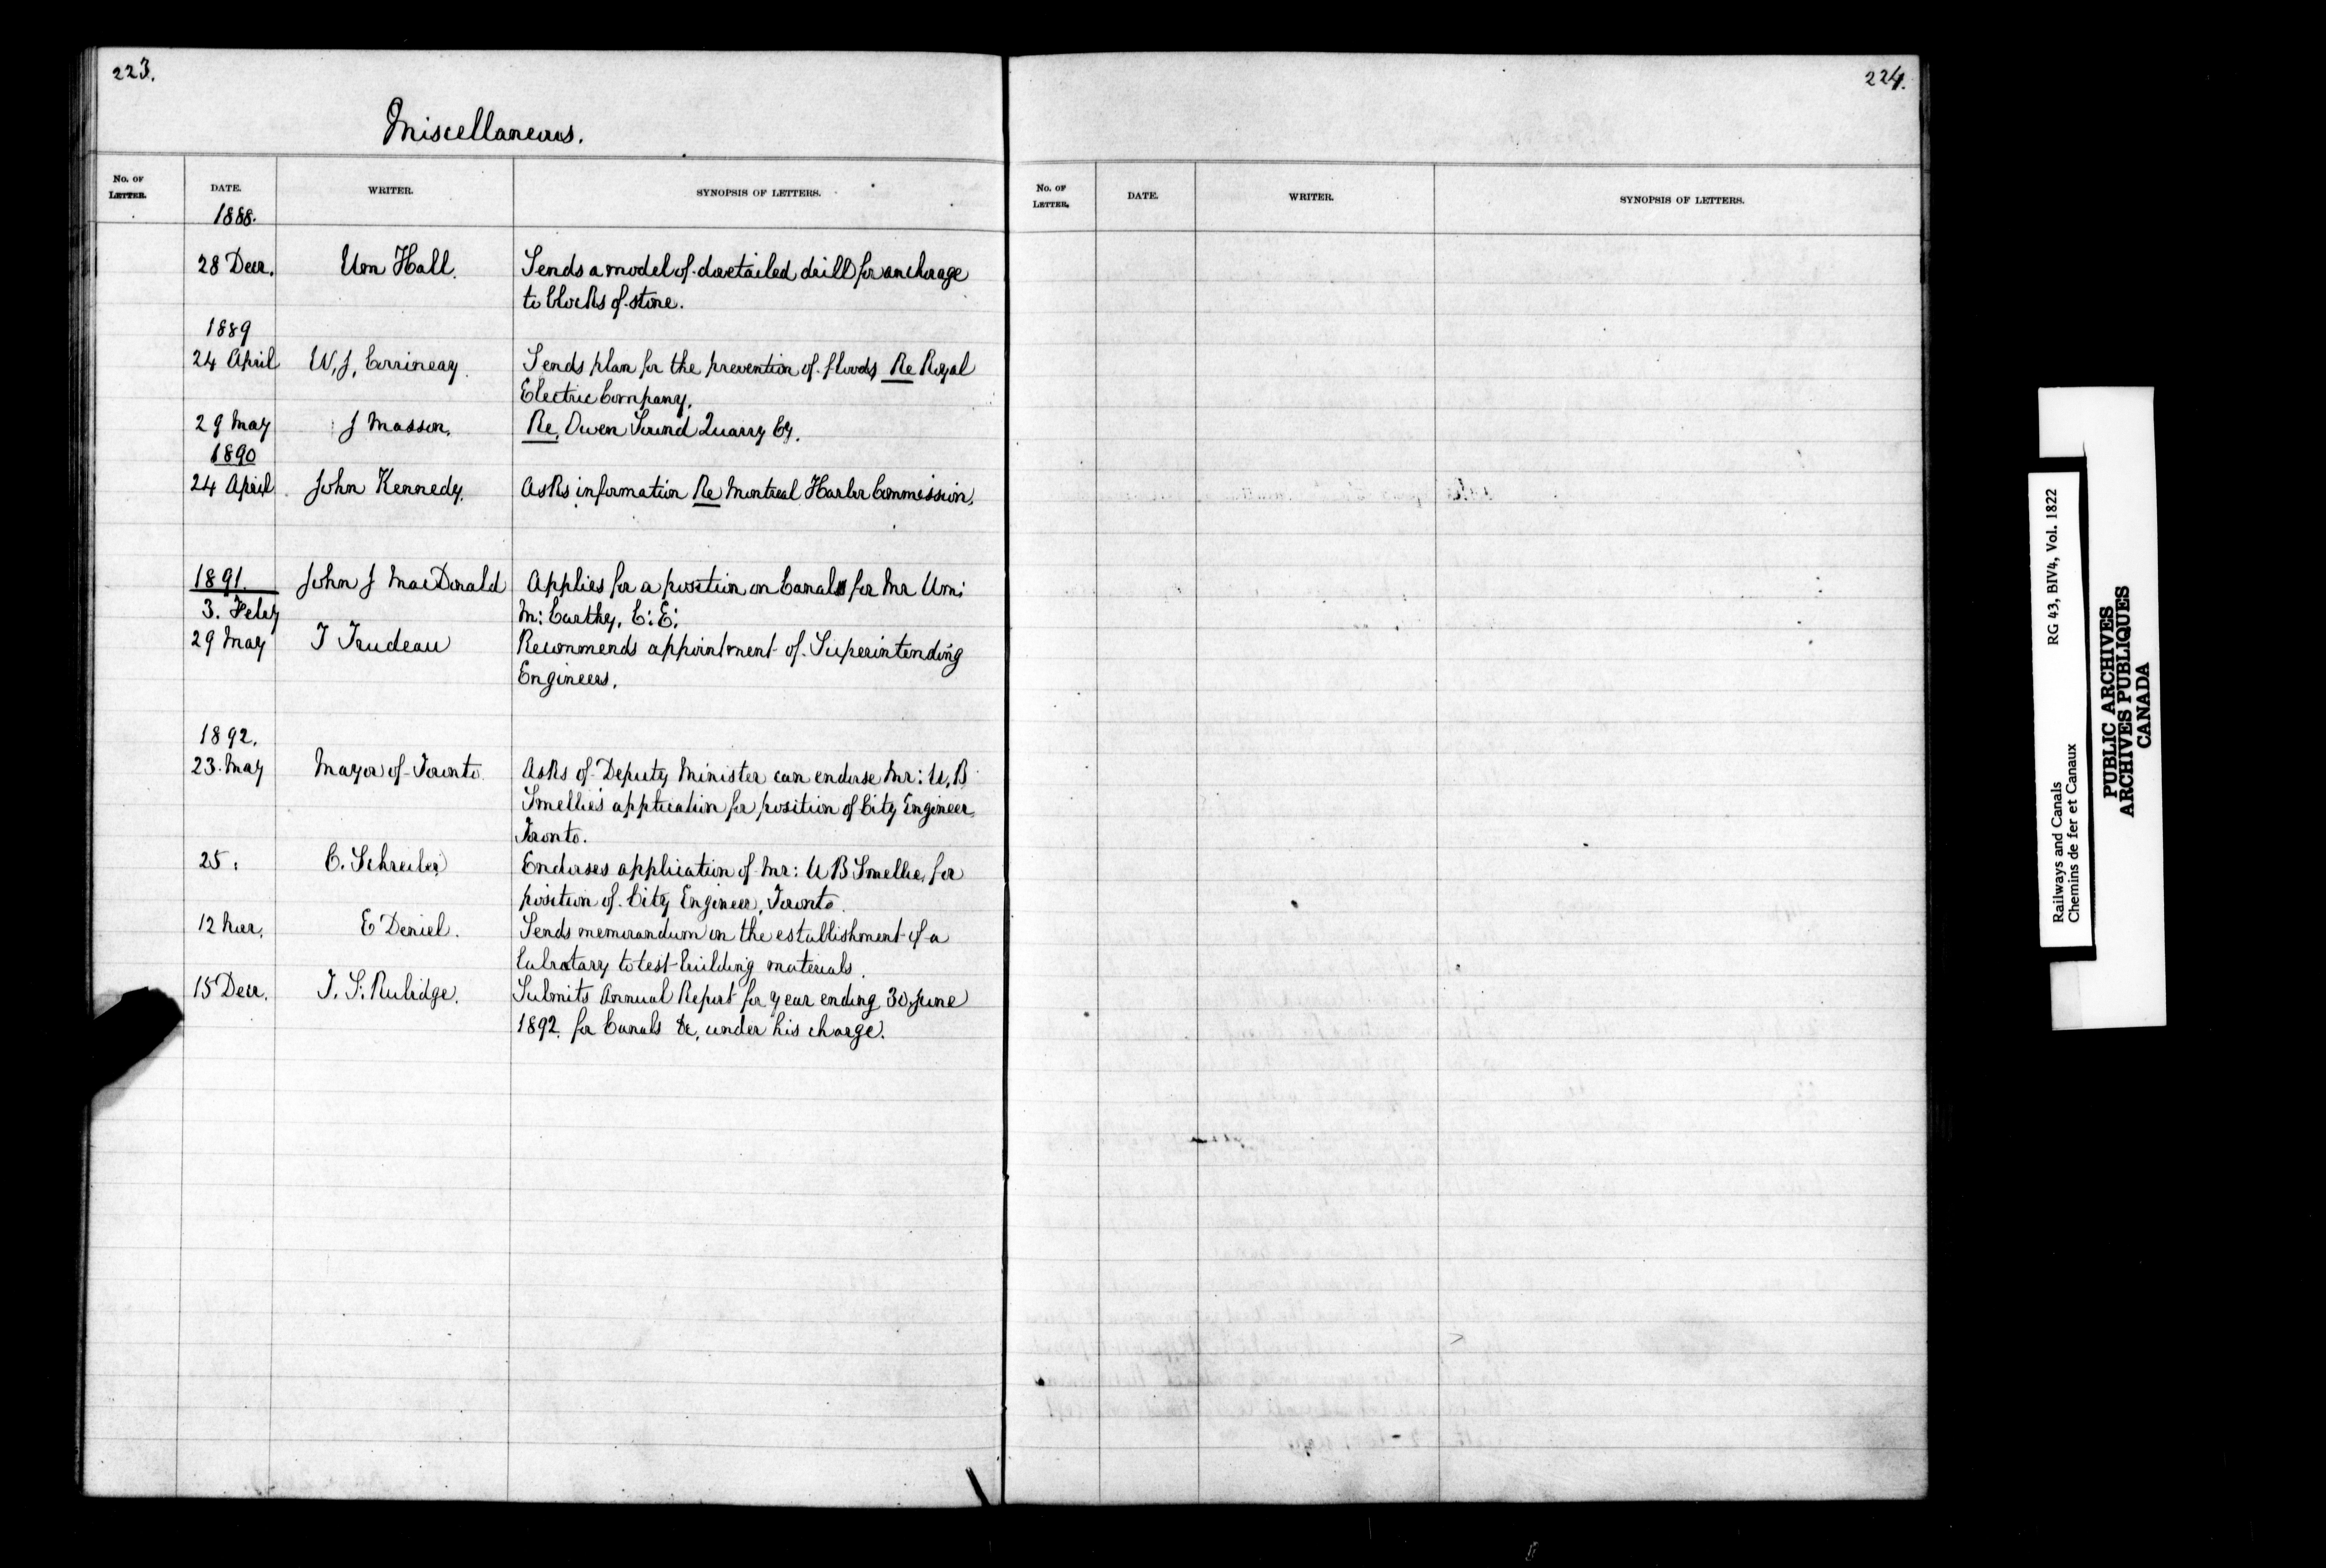 223.
Miscellaneous.
No. OF LETTER. DATE. WRITER. SYNOPSIS OF LETTERS.
1888.
28 Decr. Wm Hall. Sends a model of dovetailed drill for anchorage
to blocks of stone.
1889
24 April W, J, Sends plan for the prevention of floods Re Royal
Electric Company.
29 May J Masson. Re, Owen Sound Quarry Cy.
1890
24 April John Kennedy. Asks information Re Montreal Harbor Commission.
1891. John J MacDonald Applies for a position on Canals for Mr Wm:
3. Feby Mc Carthy, C: E:
29 May T Trudeau Recommends appointment of Superintending
Engineers.
1892.
23 May Mayor of Toronto Asks of Deputy Minister can endorse Mr: W, B
Smellie's application for position of City Engineer
Toronto.
25 : C. Schreiber Endorses application of Mr: W B Smellie, for
position of City Engineer, Toronto.
12 E Deniel. Sends memorandum on the establishment of a
Labratary to test building materials.
15 Decr. T. S. Rubidge. Submits Annual Report for year ending 30 June
1892. for Canals &c, under his charge.
224.
No. OF LETTER. DATE. WRITER. SYNOPSIS OF LETTERS.
Railways and Canals RG 43, BIV4, Vol. 1822
Chemins de fer et Canaux
PUBLIC ARCHIVES
ARCHIVES PUBLIQUES
CANADA